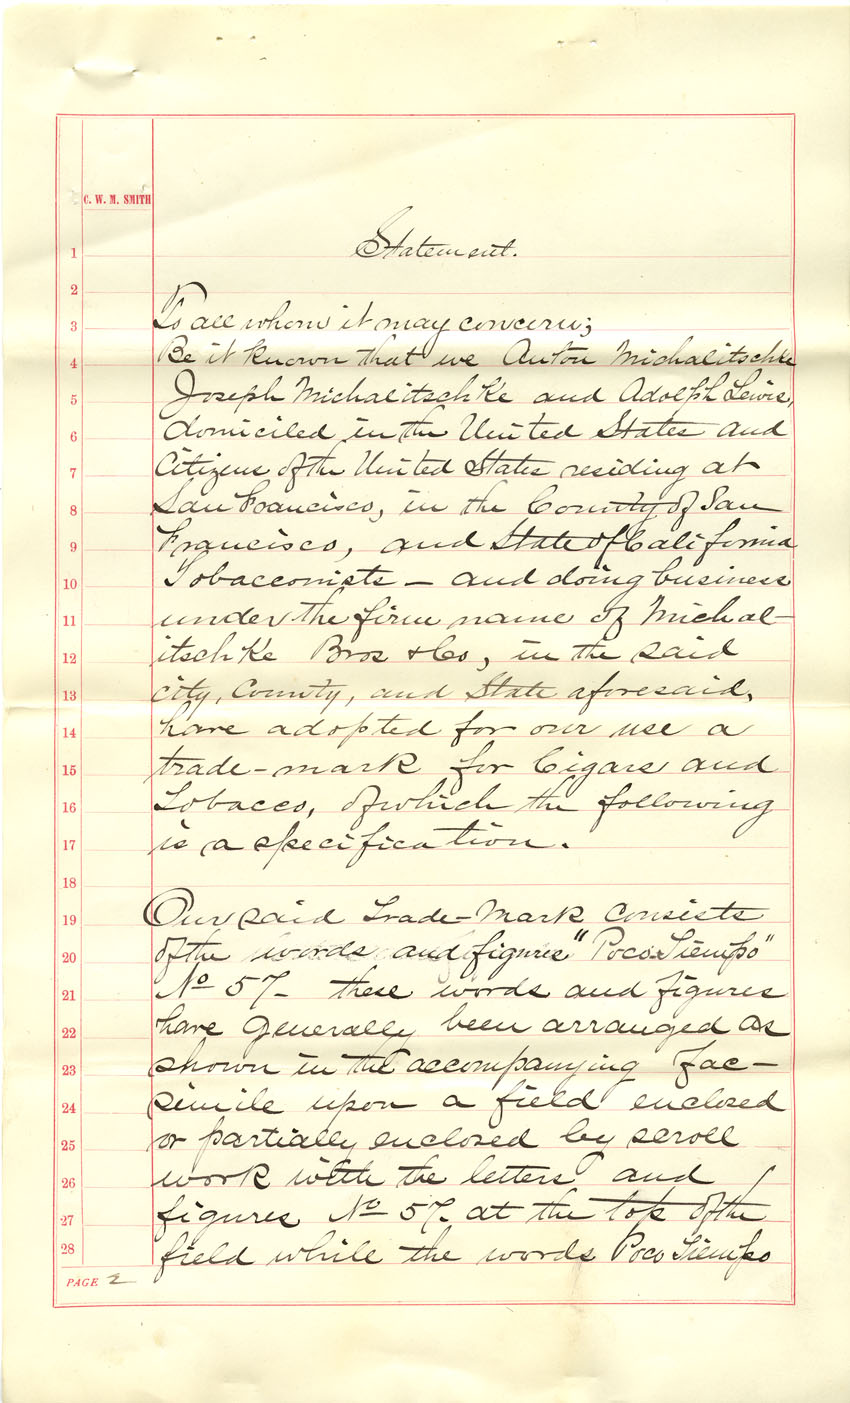 C. W. M. SMITH
1 Statement.
2
3 To all whom it may concern;
4 Be it known that we Anton Michalitschke
5 Joseph Michalitschke and Adolph Lewis,
6 domiciled in the United States and
7 Citizens of the United States residing at
8 San Francisco, in the County of San
9 Francisco, and State of California
10 Tobacconists – and doing business
11 under the firm name of Michal-
12 itschke Bros & Co, in the said
13 city, County, and State aforesaid,
14 have adopted for our use a
15 trade-mark for Cigars and
16 Tobacco, of which the following
17 is a specification.
18
19 Our said Trade-Mark consists
20 of the words and figures "Poco Tiempo"
21 No 57– these words and figures
22 have generally been arranged as
23 shown in the accompanying fac-
24 simile upon a field enclosed
25 or partially enclosed by scroll
26 work with the letters and
27 figures No 57. at the top of the
28 field while the words Poco Tiempo
PAGE 2